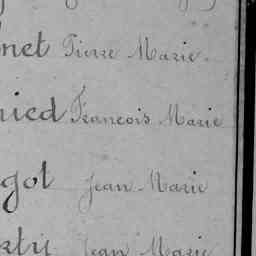 net Pierre Marie
nied Francois Marie
got Jean Marie
Jean Marie